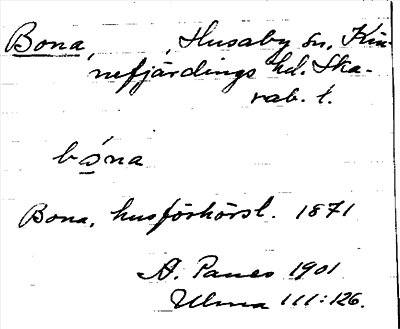 Bona, , Husaby sn, Kin-
nefjärdings hd. Ska-
rab. l.
bóna
Bona, husförhörsl. 1871
A. Palles 1901
Ulma 111:126.